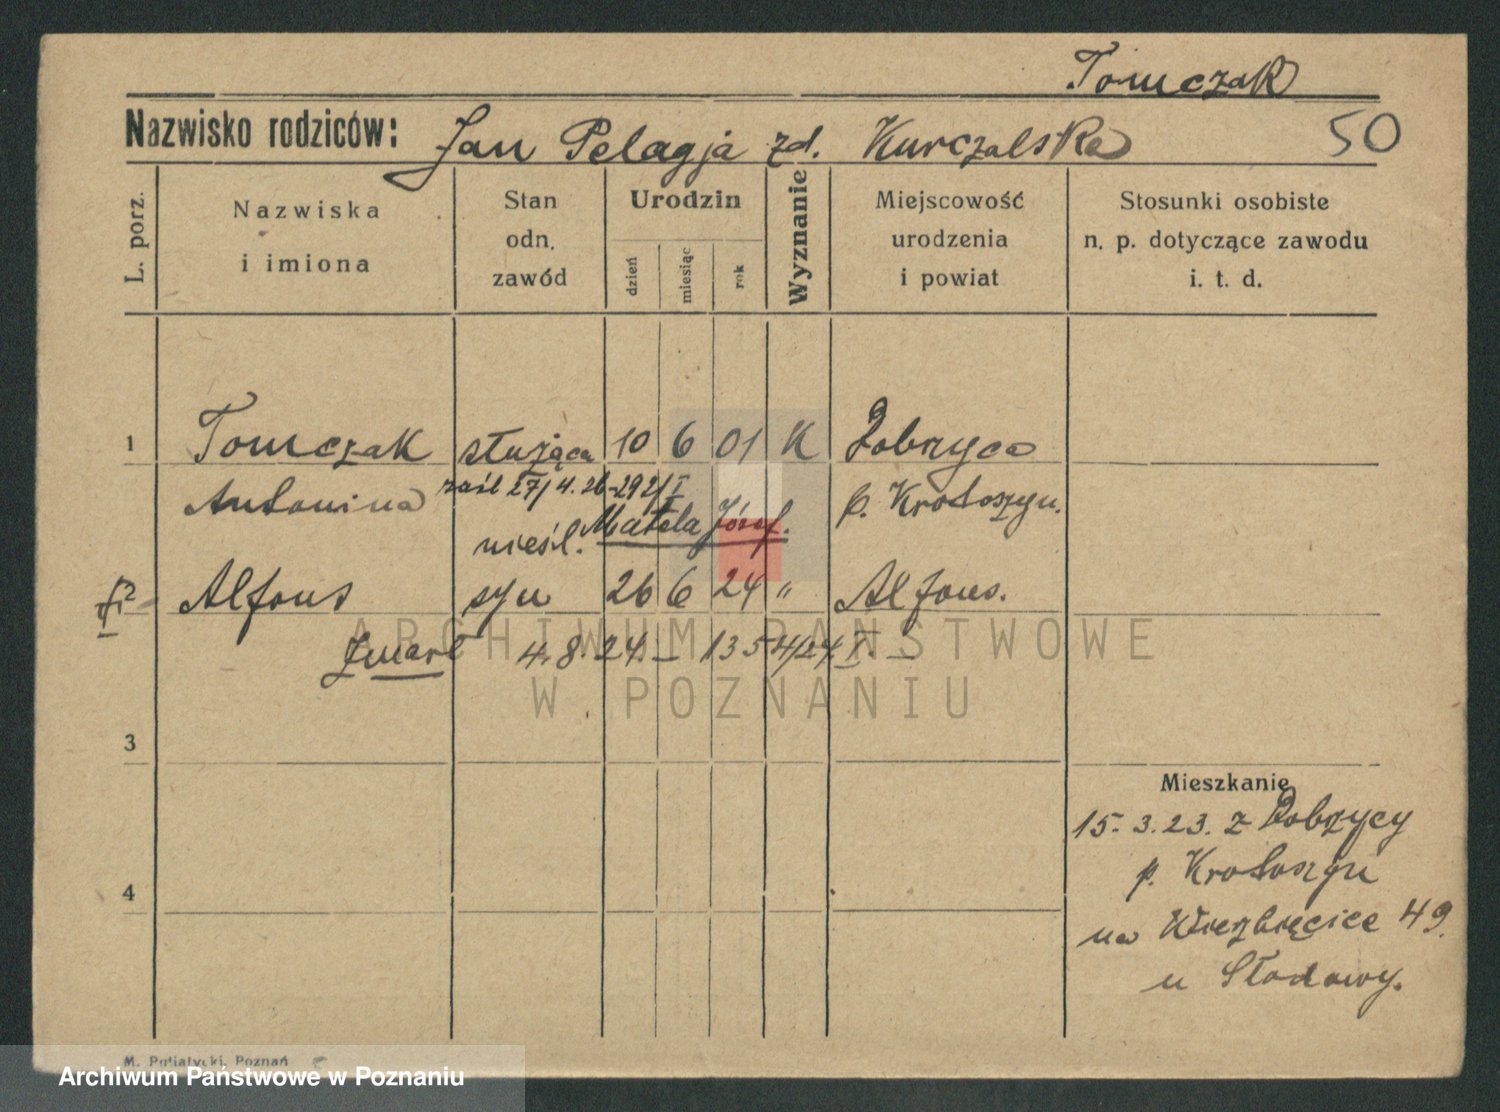 Tomczak
Nazwisko rodziców: Jan Pelagja zd. Kurczalska 50
L. porz.
Nazwiska
i imiona
Stan
odn.
zawód
Urodzin
dzień
miesiąc
rok
Wyznanie
Miejscowość
urodzenia
i powiat
Stosunki osobiste
n. p. dotyczące zawodu
i. t. d.
1 Tomczak służąca 10 6 01 K Dobrzyca
Antonina zaśl 27/4. 26 - 292/I p. Krotoszyn.
nieśl. Matela Józef.
2 Alfons syn 26 6 24 " Alfons.
Zmarł 4.8.24. – 1354/24 I. –
ARCHIWUM PAŃSTWOWE
W POZNANIU
3
4
Mieszkanie
15.3.23. z Dobrzycy
p. Krotoszyn
na Wierzbięcice 49.
u Słodowy.
M. Putiatycki, Poznań
Archiwum Państwowe w Poznaniu